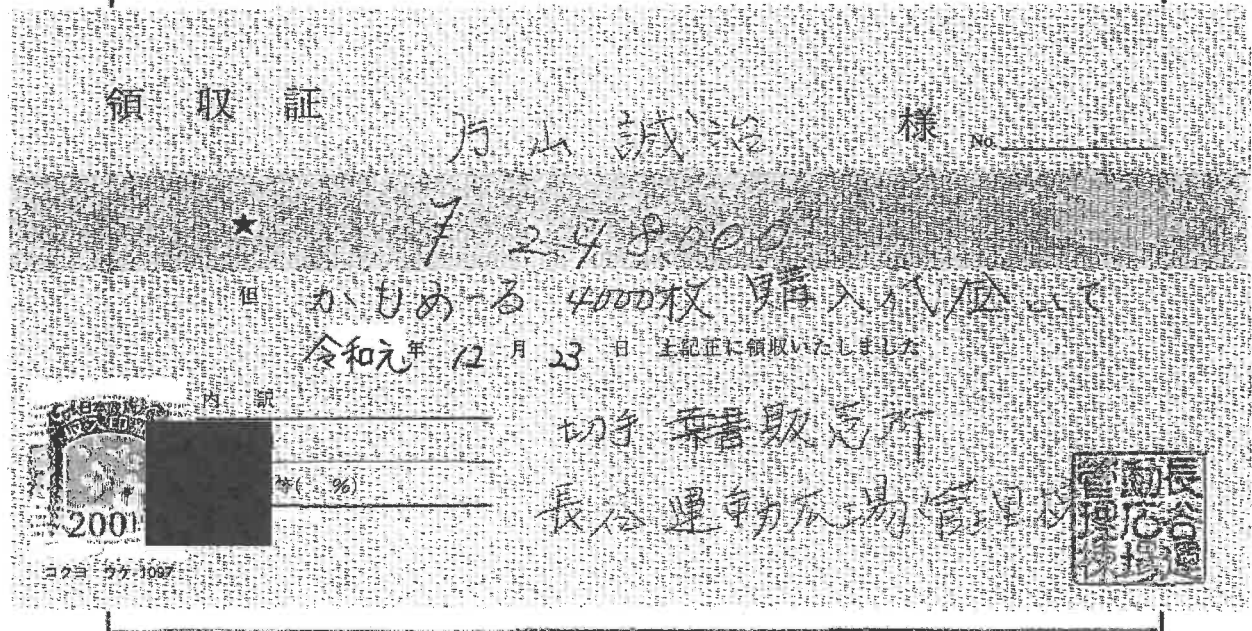 領収証 片山誠治 様 No.
★ ¥248,000
但 かもめーる 4000枚 購入代金として
令和元年 12月 23日 上記正に領収いたしました
内訳
切手 葉書販売所
(　%)
長谷運動広場管理棟
長谷運動広場管理棟
200
コクヨ ウケ-1097